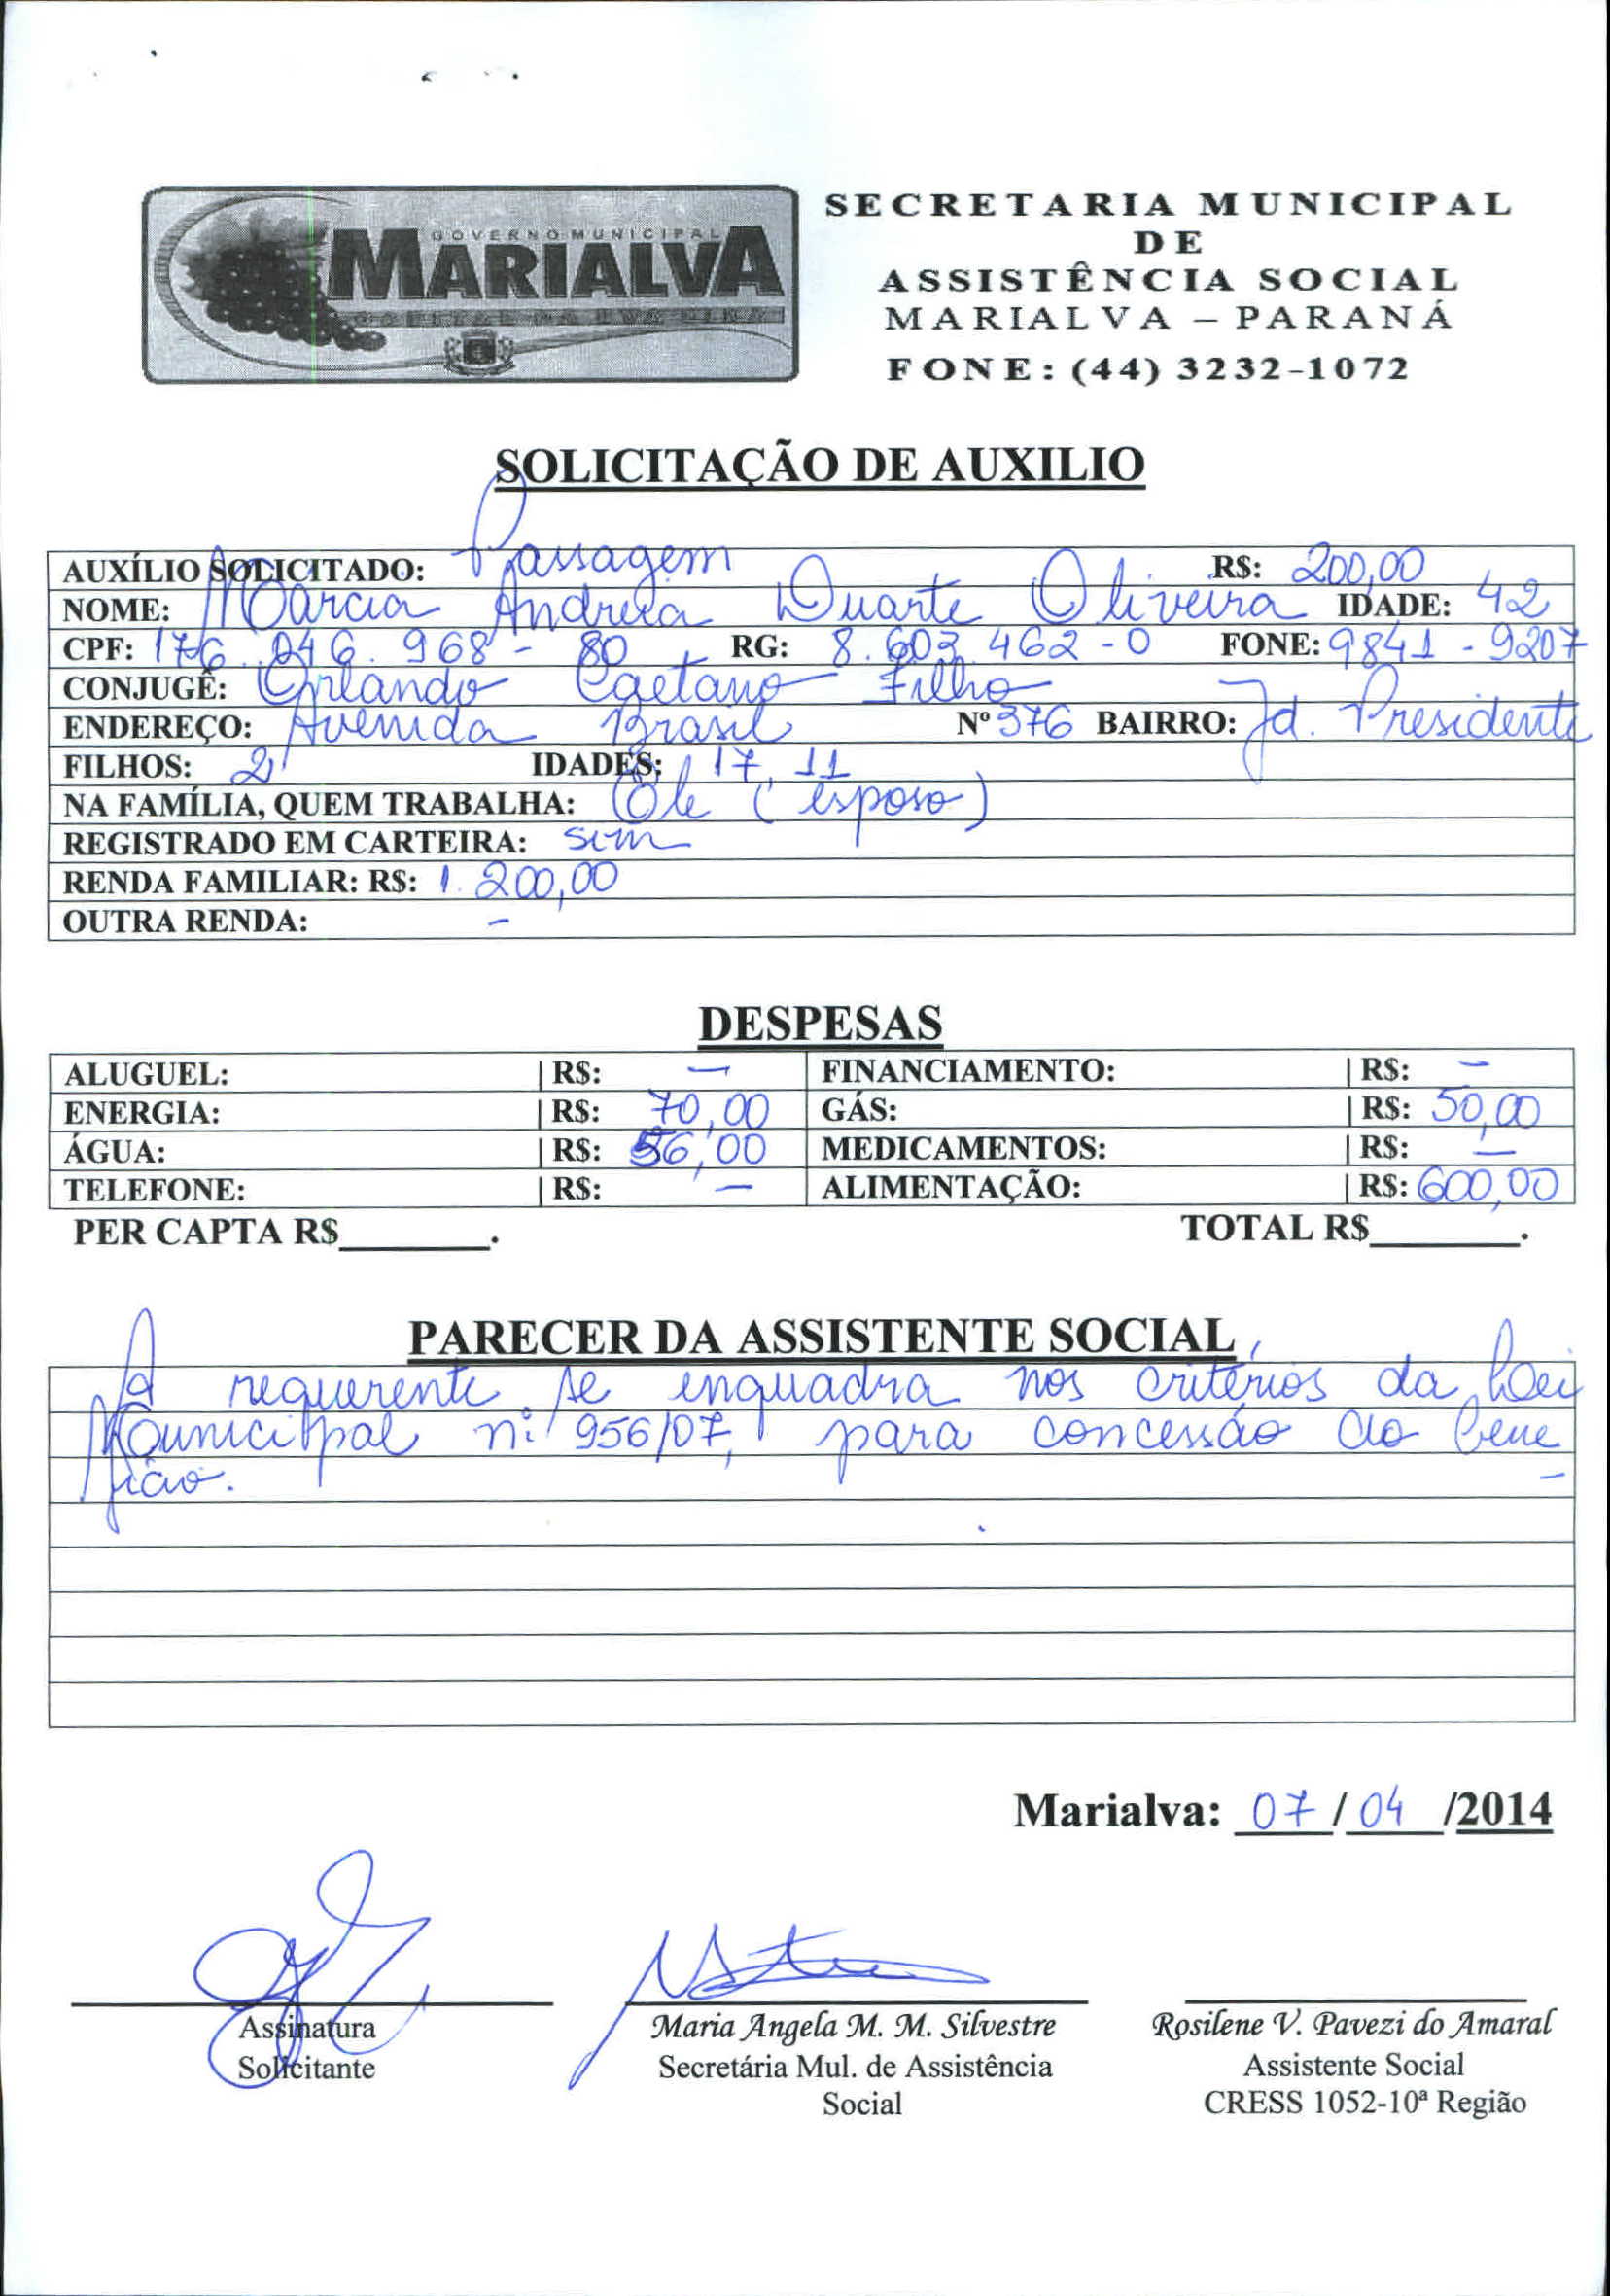 GOVERNO MUNICIPAL
MARIALVA
CAPITAL DA UVA FINA
SECRETARIA MUNICIPAL
DE
ASSISTÊNCIA SOCIAL
MARIALVA – PARANÁ
FONE: (44) 3232-1072
SOLICITAÇÃO DE AUXILIO
AUXÍLIO SOLICITADO: Passagem R$: 200,00
NOME: Marcia Andreia Duarte Oliveira IDADE: 42
CPF: 176.046.968-80 RG: 8.603.462-0 FONE: 9841-9207
CONJUGÊ: Orlando Caetano Filho
ENDEREÇO: Avenida Brasil Nº 376 BAIRRO: Jd. Presidente
FILHOS: 2 IDADES: 17, 11
NA FAMÍLIA, QUEM TRABALHA: Ele (esposo)
REGISTRADO EM CARTEIRA: sim
RENDA FAMILIAR: R$: 1.200,00
OUTRA RENDA: -
DESPESAS
ALUGUEL: | R$: - FINANCIAMENTO: | R$: -
ENERGIA: | R$: 70,00 GÁS: | R$: 50,00
ÁGUA: | R$: 56,00 MEDICAMENTOS: | R$: -
TELEFONE: | R$: - ALIMENTAÇÃO: | R$: 600,00
PER CAPTA R$________. TOTAL R$________.
PARECER DA ASSISTENTE SOCIAL
A requerente se enquadra nos critérios da Lei
Municipal nº 956/07, para concessão do bene-
fício.
Marialva: 07/04/2014
Assinatura
Solicitante
Maria Angela M. M. Silvestre
Secretária Mul. de Assistência
Social
Rosilene V. Pavezi do Amaral
Assistente Social
CRESS 1052-10ª Região